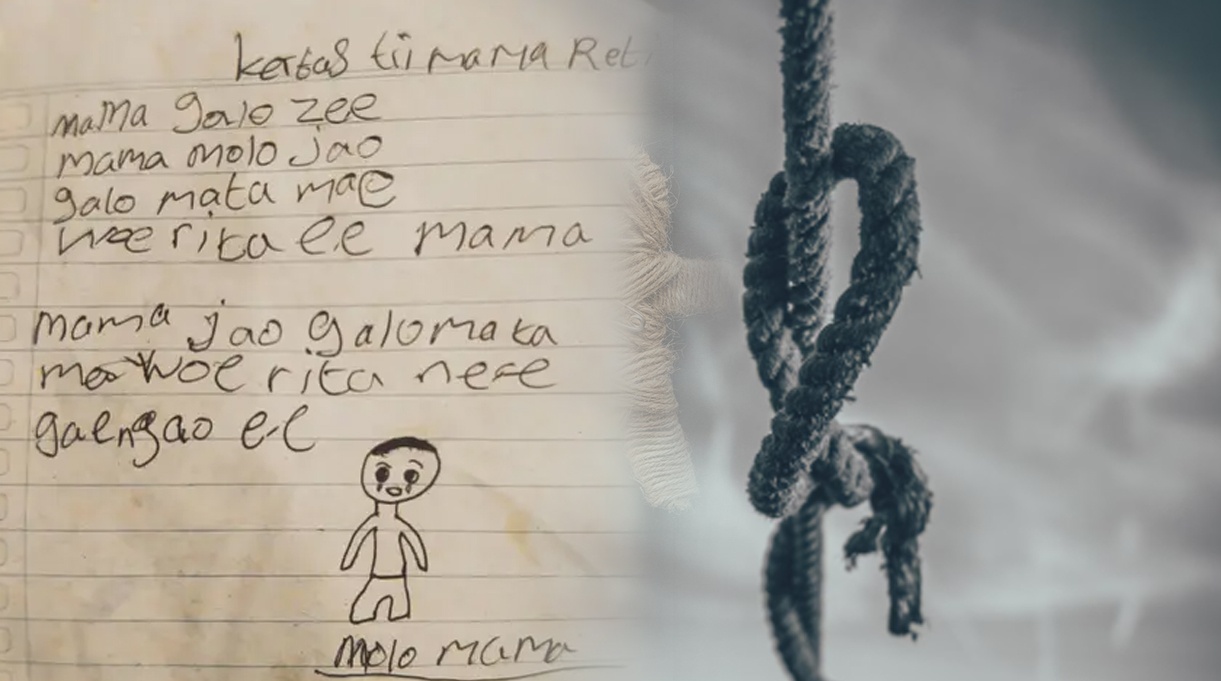 kertas tii mama Ret
mama galo zee
mama molo jao
galo mata mae
woe rita ee mama
mama jao galo mata
mae woe rita nee
gaengao ee
molo mama